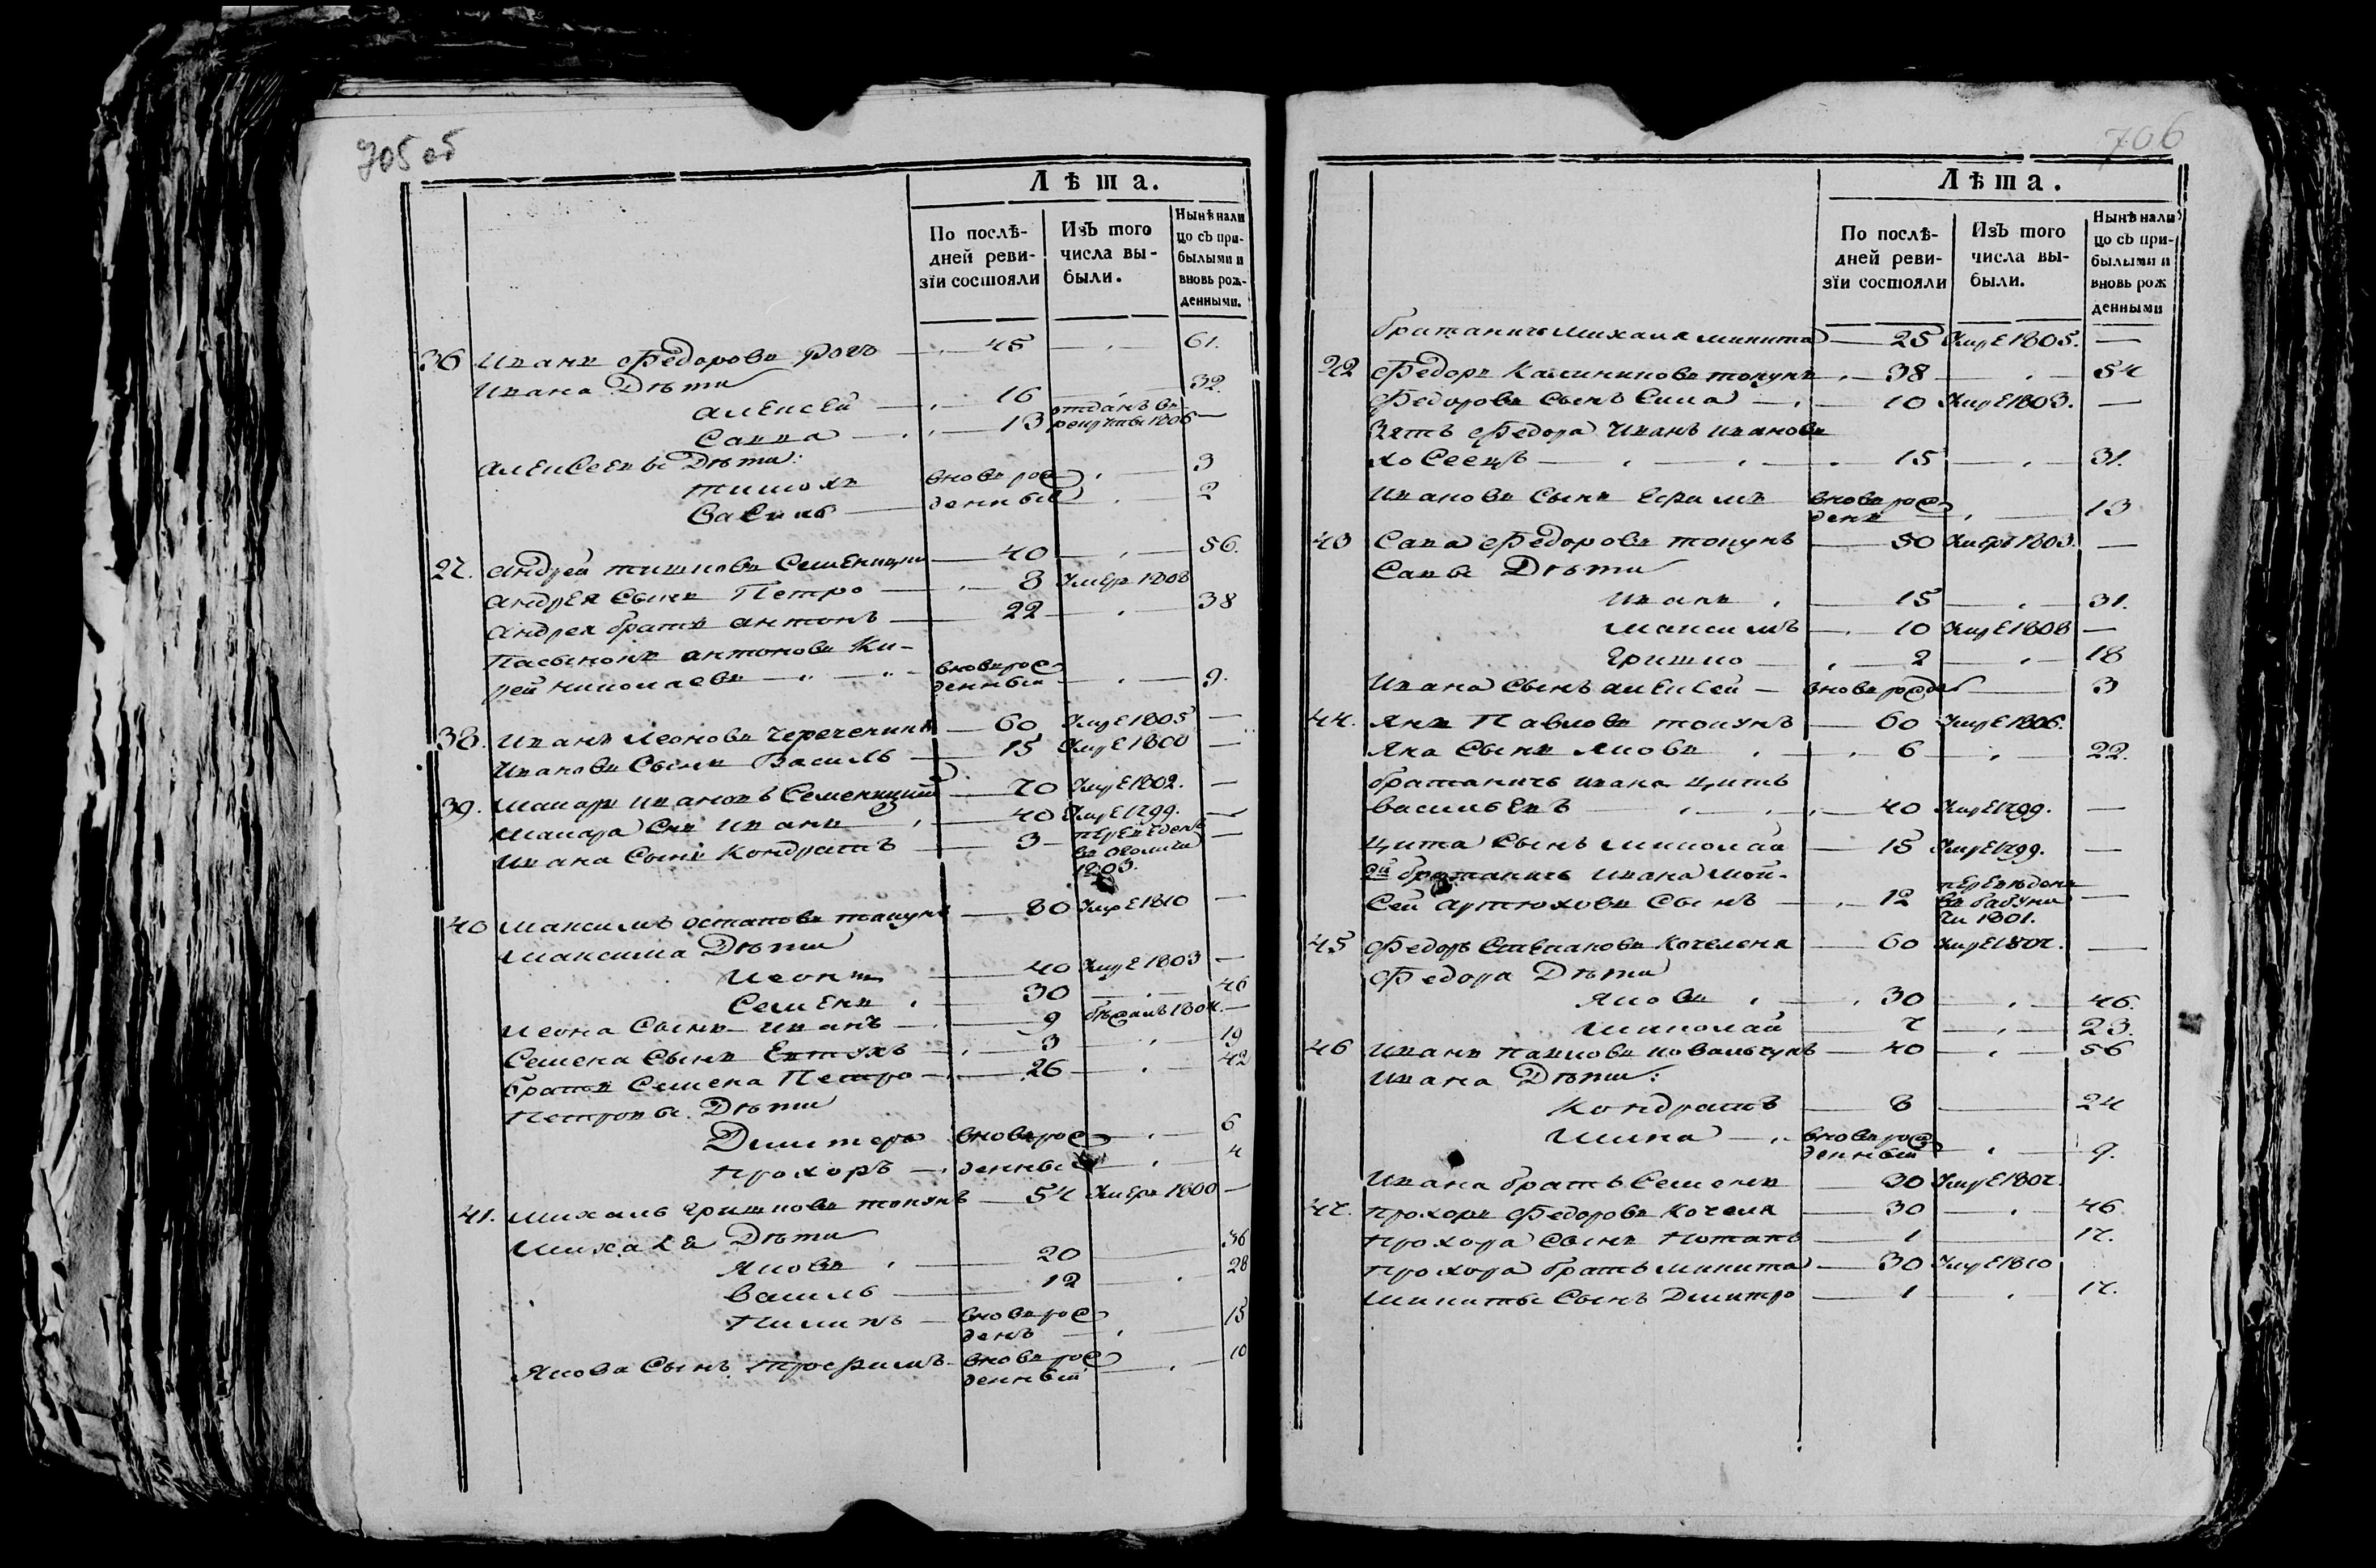 705 об
Лѣта.
По послѣдней ревизіи состояли
Изъ того числа выбыли.
Нынѣ налицо съ прибылыми и вновь рожденными.
36 Иванъ Федоровъ Рогъ — 45 — 61.
Ивана Дѣти
Алексей — 16 — 32.
Савва — 13 отданъ въ рекруты 1806 —
Алексеевы Дѣти:
Тимохъ вновь рож 3
Василь денный 2
27. Андрей Тишковъ — 40 — 56.
Андрея Сынъ Петро — 8 Умеръ 1808
Андрея братъ Антонъ — 22 — 38
Пасынокъ Антоновъ Ки-
рей Николаевъ вновьрож денный — 9.
38. Иванъ Леоновъ — 60 Умре 1805 —
Ивановъ Сынъ Василь — 15 Умре 1800 —
39. Макаръ Ивановъ Семеницкий — 70 Умре 1802. —
Макара Снъ Иванъ — 40 Умре 1799. —
Ивана Сынъ Кондратъ — 3 — переведенъ въ 1803. —
40 Максимъ Остаповъ — 80 Умре 1810 —
Максима Дѣти
Леонъ — 40 Умре 1803 —
Семенъ — 30 — 46
Леона Сынъ Иванъ — 9 бѣжалъ 1804. —
Семена Сынъ Евтухъ — 3 — 19
братъ Семена Петро — 26 — 42
Петровы Дѣти
Дмитеръ вновьрож — 6
Прохоръ — денные — 4
41. Михаль Гришковъ токунъ — 54 Умеръ 1800 —
Михала Дѣти
Яковъ — 20 — 36
Василь — 12 — 28
Пилипъ — вновьрож денъ — 15
Якова Сынъ Трофимъ — вновьрож денный — 10
706
Лѣта.
По послѣдней ревизіи состояли
Изъ того числа выбыли.
Нынѣ налицо съ прибылыми и вновь рожденными
братаничъ Михала Микита — 25 Умре 1805. —
22 Федоръ Калининовъ токунъ — 38 — 54
Федоровъ Сынъ Сила — 10 Умре 1803. —
Зять Федора Иванъ Ивановъ
— 15 — 31.
Ивановъ Сынъ вновьрож денъ — 13
43 Сава Федоровъ токунъ — 50 Умеръ 1803. —
Савы Дѣти
Иванъ — 15 — 31.
Максимъ — 10 Умре 1808 —
Гришко — 2 — 18
Ивана Сынъ Алексей — вновьрожде — 3
44. Янъ Павловъ токунъ — 60 Умре 1806.
Яна Сынъ Яковъ — 6 — 22.
братаничъ Ивана
Васильевъ — 40 Умре 1799. —
Сынъ Миколай — 15 Умре 1799. —
2й братаничъ Ивана Мой-
сей Артюховъ Сынъ — 12 переведенъ въ 1801. —
45 Федоръ Степановъ — 60 Умре 1807. —
Федора Дѣти
Яковъ — 30 — 46.
Миколай — 7 — 23.
46 Иванъ Павловъ Ковальчукъ — 40 — 56
Ивана Дѣти:
Кондратъ — 8 — 24
Мина — вновьрож денный — 9.
Ивана братъ Семенъ — 30 Умре 1807.
47. Прохоръ Федоровъ Кочела — 30 — 46
Прохора Сынъ Потапъ — 1 — 17.
Прохора братъ Микита — 30 Умре 1810
Микиты Сынъ Дмитро — 1 — 17.